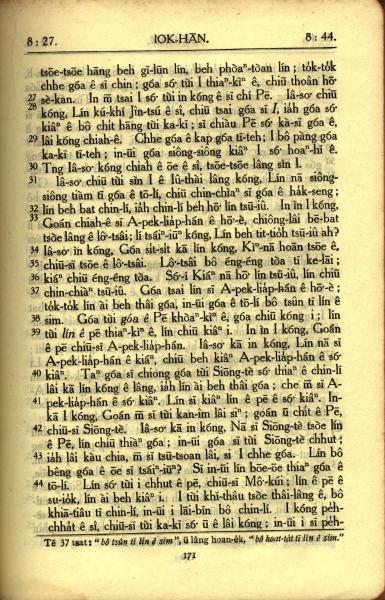 8 : 27. IOK-HĀN. 8 : 44.
tsōe-tsōe hāng beh gī-lūn lín, beh phòaⁿ-tòan lín ; to̍k-to̍k
chhe góa ê sī chin ; góa só͘ tùi I thiaⁿ-kìⁿ ê, chiū thoân hō͘
27 sè-kan. In m̄ tsai I só͘ tùi in kóng ê sī chí Pē. Iâ-so͘ chiū
28 kóng, Lín kú-khí Jîn-tsú ê sî, chiū tsai góa sī I, ia̍h góa só͘
kiâⁿ ê bô chi̍t hāng tùi ka-kī ; sī chiàu Pē só͘ kà-sī góa ê,
29 lâi kóng chiah-ê. Chhe góa ê kap góa tī-teh ; I bô pàng góa
ka-kī tī-teh ; in-ūi góa siông-siông kiâⁿ I só͘ hoaⁿ-hí ê.
30 Tng Iâ-so͘ kóng chiah ê ōe ê sî, tsōe-tsōe lâng sìn I.
31 Iâ-so͘ chiū tùi sìn I ê Iû-thài lâng kóng, Lín nā siông-
siông tiàm tī góa ê tō-lí, chiū chin-chiàⁿ sī góa ê ha̍k-seng ;
32 lín beh bat chin-lí, ia̍h chin-lí beh hō͘ lín tsū-iû. In ìn I kóng,
33 Goán chiah-ê sī A-pek-lia̍p-hán ê hō͘-è, chiông-lâi bē-bat
tsòe lâng ê lô͘-tsâi ; lí tsáiⁿ-iūⁿ kóng, Lín beh tit-tio̍h tsū-iû ah?
34 Iâ-so͘ ìn kóng, Góa si̍t-si̍t kā lín kóng, Kìⁿ-nā hoān tsōe ê,
35 chiū-sī tsōe ê lô͘-tsâi. Lô͘-tsâi bô éng-éng tòa tī ke-lāi ;
36 kiáⁿ chiū éng-éng tòa. Só͘-í Kiáⁿ nā hō͘ lín tsū-iû, lín chiū
37 chin-chiàⁿ tsū-iû. Góa tsai lín sī A-pek-lia̍p-hán ê hō͘-è ;
to̍k-to̍k lín ài beh thâi góa, in-ūi góa ê tō-lí bô tsûn tī lín ê
38 sim. Góa tùi góa ê Pē khòaⁿ-kìⁿ ê, góa chiū kóng i ; lín
39 tùi lín ê pē thiaⁿ-kìⁿ ê, lín chiū kiâⁿ i. In ìn I kóng, Goán
ê pē chiū-sī A-pek-lia̍p-hán. Iâ-so͘ kā in kóng, Lín nā sī
A-pek-lia̍p-hán ê kiáⁿ, chiū beh kiâⁿ A-pek-lia̍p-hán ê só͘
40 kiâⁿ. Taⁿ góa sī chiong góa tùi Siōng-tè só͘ thiaⁿ ê chin-lí
lâi kā lín kóng ê lâng, ia̍h lín ài beh thâi góa ; che m̄ sī A-
41 pek-lia̍p-hán ê só͘ kiâⁿ. Lín sī kiâⁿ lín ê pē ê só͘ kiâⁿ. In-
kā I kóng, Goán m̄ sī tùi kan-îm lâi siⁿ ; goán ū chi̍t ê Pē,
42 chiū-sī Siōng-tè. Iâ-so͘ kā in kóng, Nā sī Siōng-tè tsòe lín
ê Pē, lín chiū thiàⁿ góa ; in-ūi góa sī tùi Siōng-tè chhut ;
43 ia̍h lâi kàu chia, m̄ sī tsū-tsoan lâi, sī I chhe góa. Lín bô
bêng góa ê ōe sī tsáiⁿ-iūⁿ? Sī in-ūi lín bōe-ōe thiaⁿ góa ê
44 tō-lí. Lín sī tùi i chhut ê pē, chiū-sī Mô͘-kúi ; lín ê pē ê
su-io̍k, lín ài beh kiâⁿ i. I tùi khí-thâu tsòe thâi-lâng ê, bô
khiā-tiâu tī chin-lí, in-ūi i lāi-bīn bô chin-lí. I kóng pe̍h-
chha̍t ê sî, chiū-sī tùi ka-kī só͘ ū ê lâi kóng ; in-ūi i sī pe̍h-
Tē 37 tsat : "bô tsûn tī lín ê sim", ū lâng hoan-e̍k, "bô hoat-ta̍t tī lín ê sim."
171